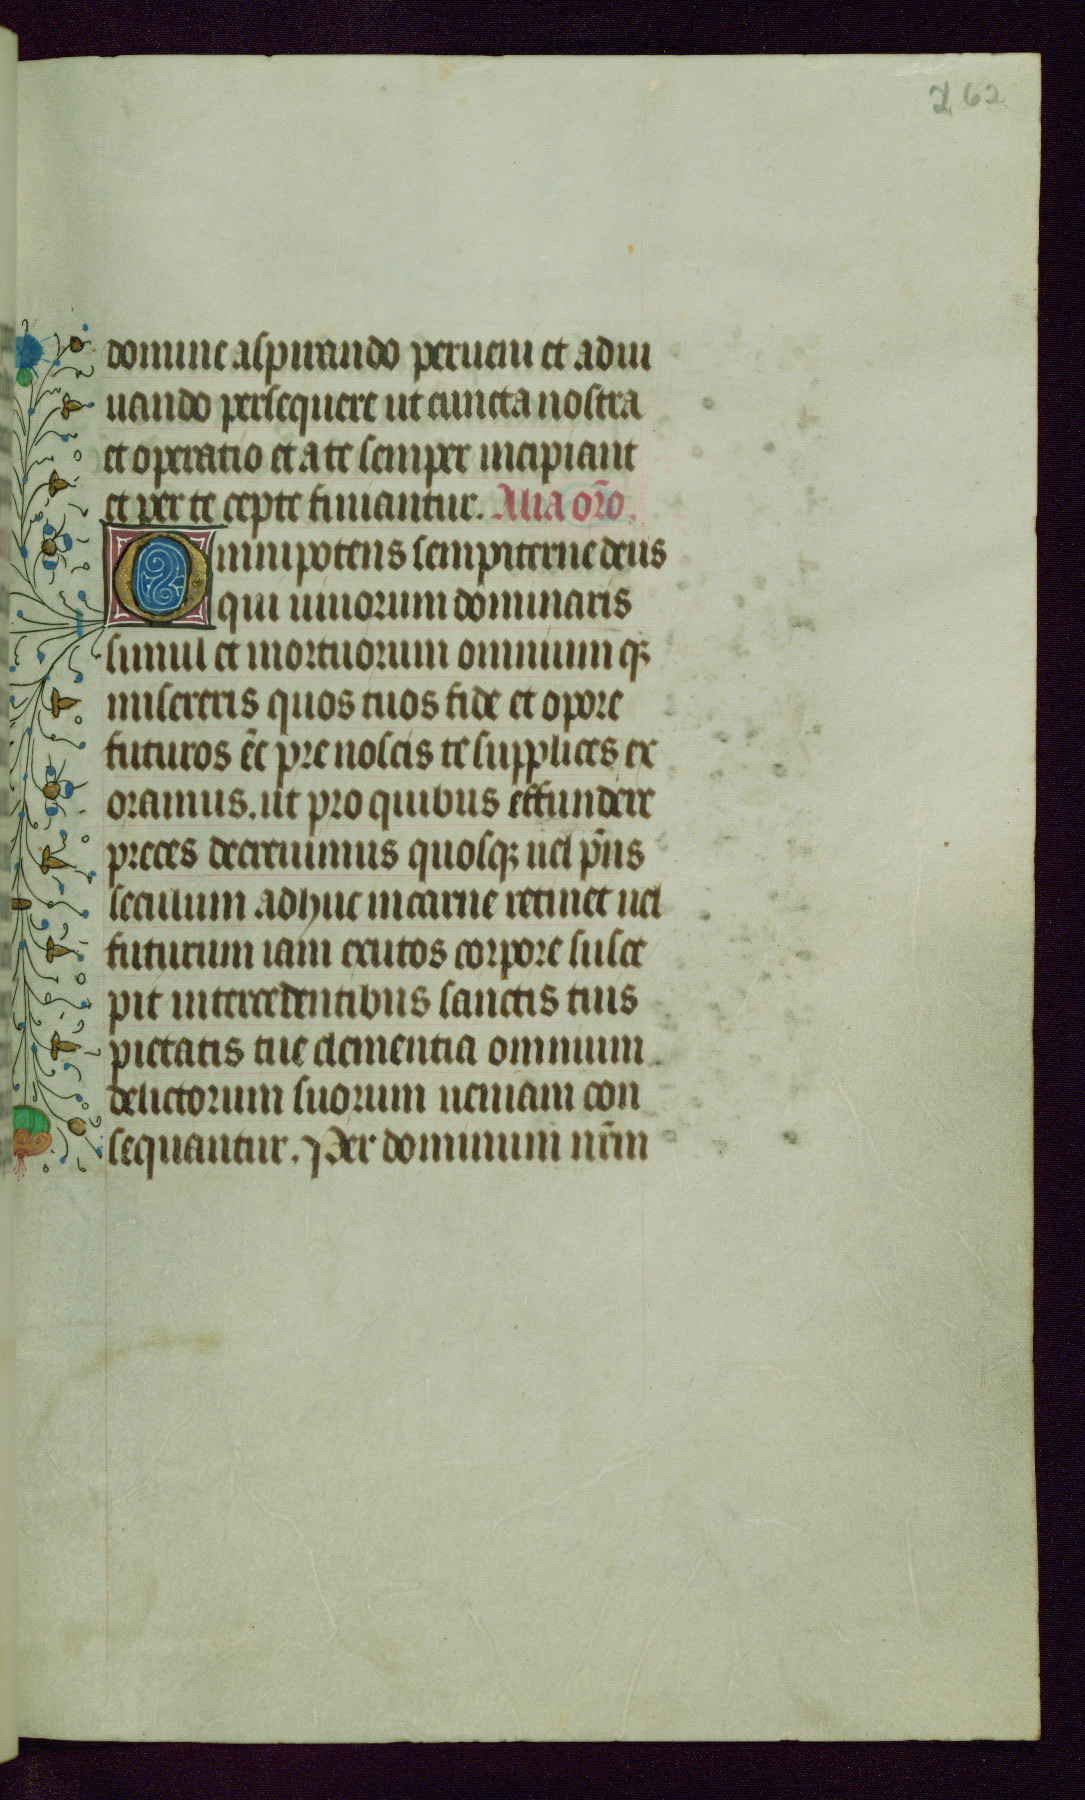 7 62
domine aspirando perueni et adiu
uando persequere ut cuncta nostra
et operatio et a te semper incipiant
et per te cepte finiantur. Alia or̃o.
Omnipotens sempiterne deus
qui uiuorum dominaris
simul et mortuorum omnium qȝ
misereris quos tuos fide et opore
futuros ẽe pre noscis te supplices ex
oramus. ut pro quibus effundere
preces decreuimus quosqȝ uel pñs
seculum adhuc in carne retinet uel
futurum iam exutos corpore susce
pit intercedentibus sanctis tuis
pietatis tue clementia omnium
delictorum suorum ueniam con
sequantur. Per dominum nr̃m